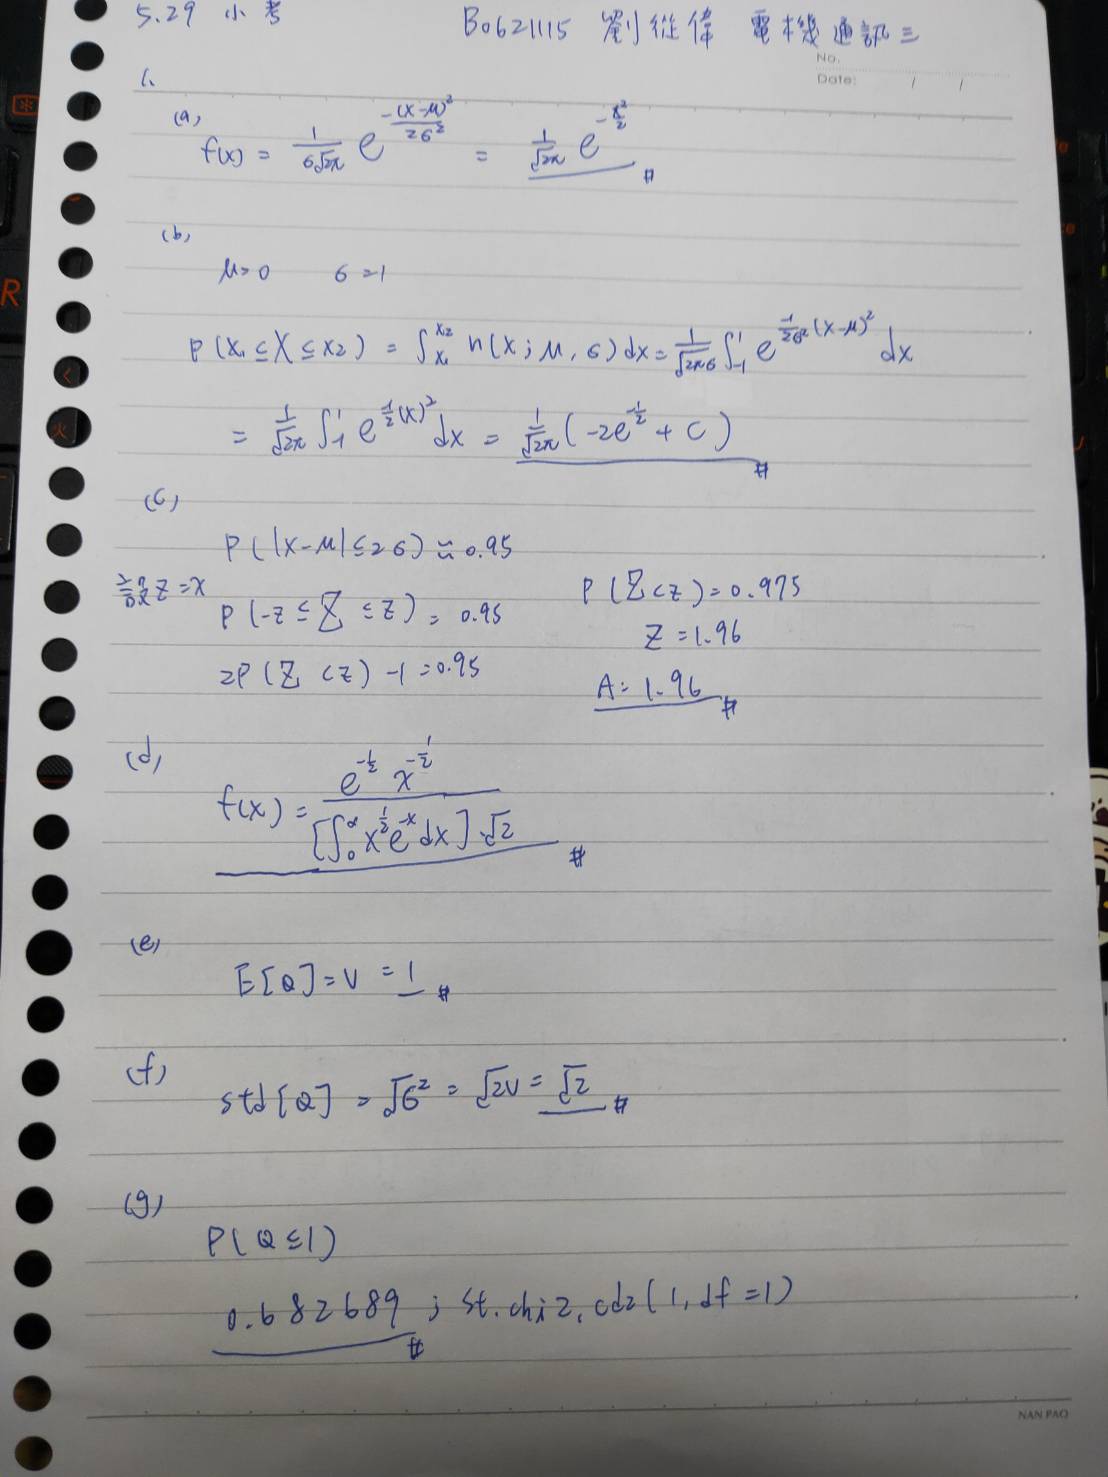 5.29 小考
B0621115 劉從偉 電機通訊三
No.
Date: / /
1.
(a)
f(x) = 1/(6√2π) e^(-(x-μ)²/26²) = 1/√2π e^(-x²/2) #
(b)
μ=0 6=1
P(x₁ ≤ X ≤ x₂) = ∫_x₁^x₂ n(x; μ, 6) dx = 1/(√2π6) ∫_-1^1 e^(-1/26² (x-μ)²) dx
= 1/√2π ∫_-1^1 e^(-1/2 (x)²) dx = 1/√2π (-2e^(-1/2) + C) #
(c)
P(|x-μ| ≤ 26) ≈ 0.95
設 Z = x
P(-z ≤ Z ≤ z) = 0.95
2P(Z < z) -1 = 0.95
P(Z < z) = 0.975
Z = 1.96
A = 1.96 #
(d)
f(x) = e^(-1/2) x^(-1/2) / [∫_0^∞ x^(1/2) e^-x dx]·√2 #
(e)
E[Q] = V = 1 #
(f)
std[Q] = √6² = √2V = √2 #
(g)
P(Q ≤ 1)
0.682689 ; st.chi2.cdz(1, df=1)
#
NAN PAO
R
火